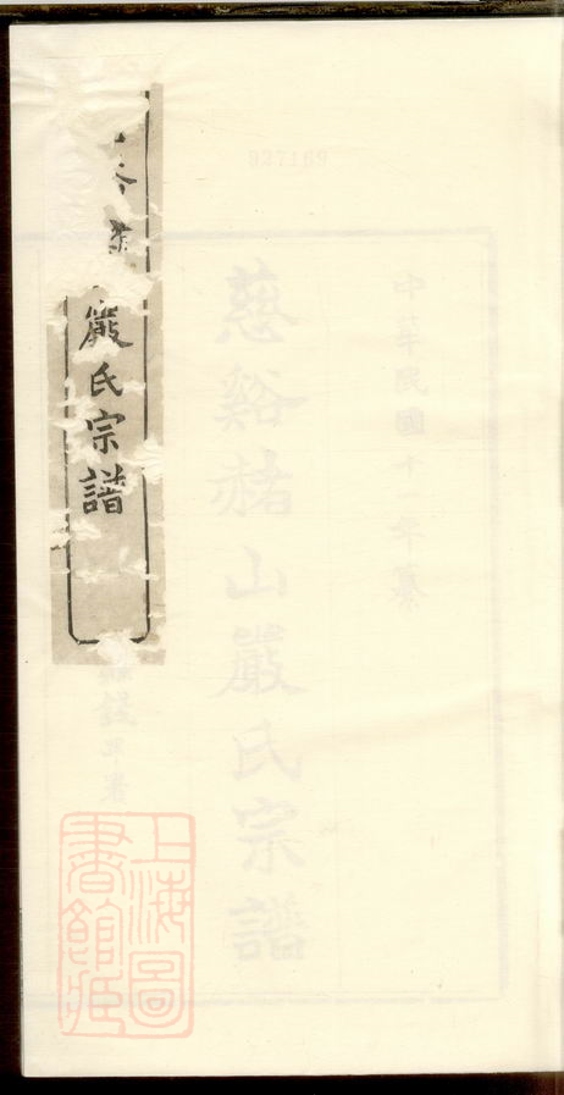 927169
中華民國十二年纂
慈谿赭山嚴氏宗譜
嚴氏宗譜
上海圖書館藏